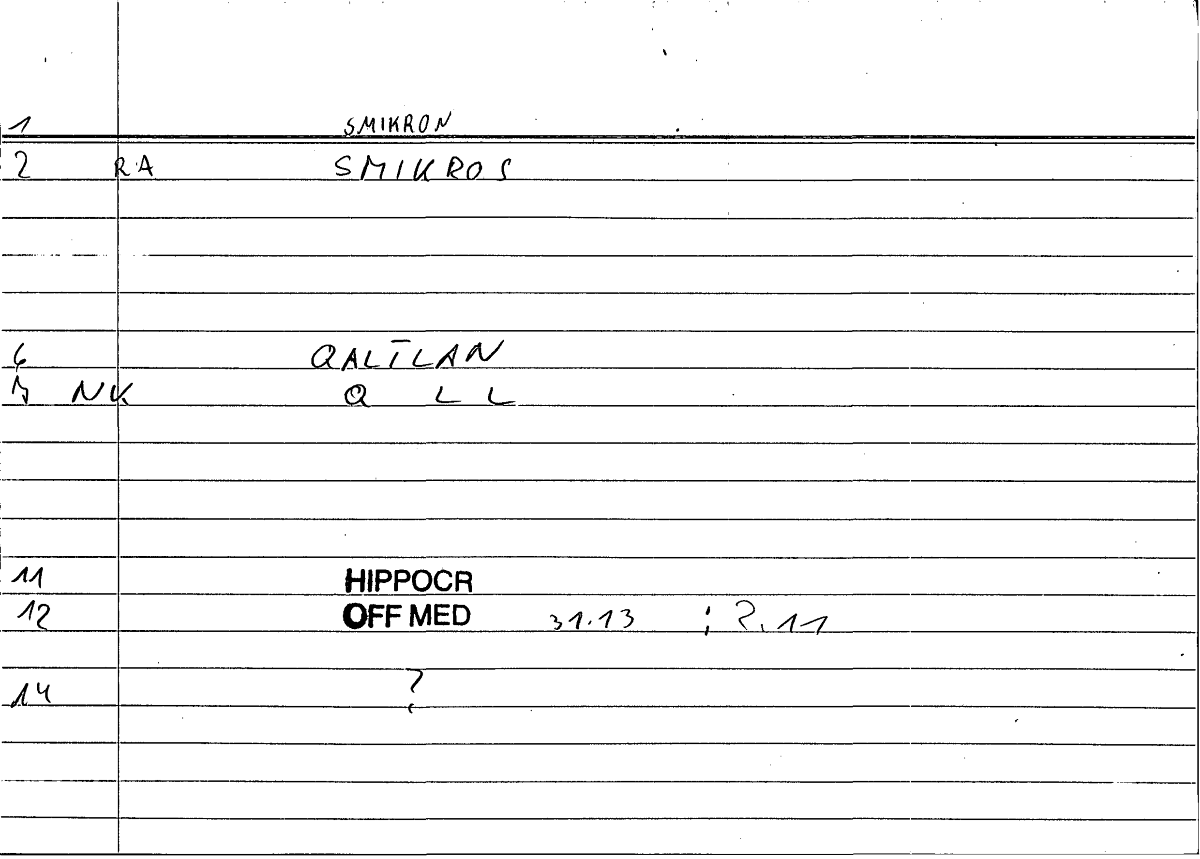 1 SMIKRON
2 RA SMIKROS
6 QALĪLAN
7 NK Q L L
11 HIPPOCR
12 OFF MED 31.13 ; 2.11
14 ?